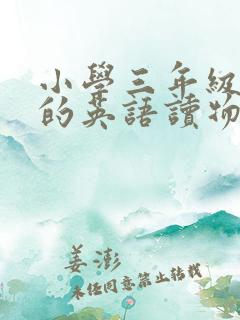 小學三年級
的英語讀物
姜澎
未經同意禁止轉載